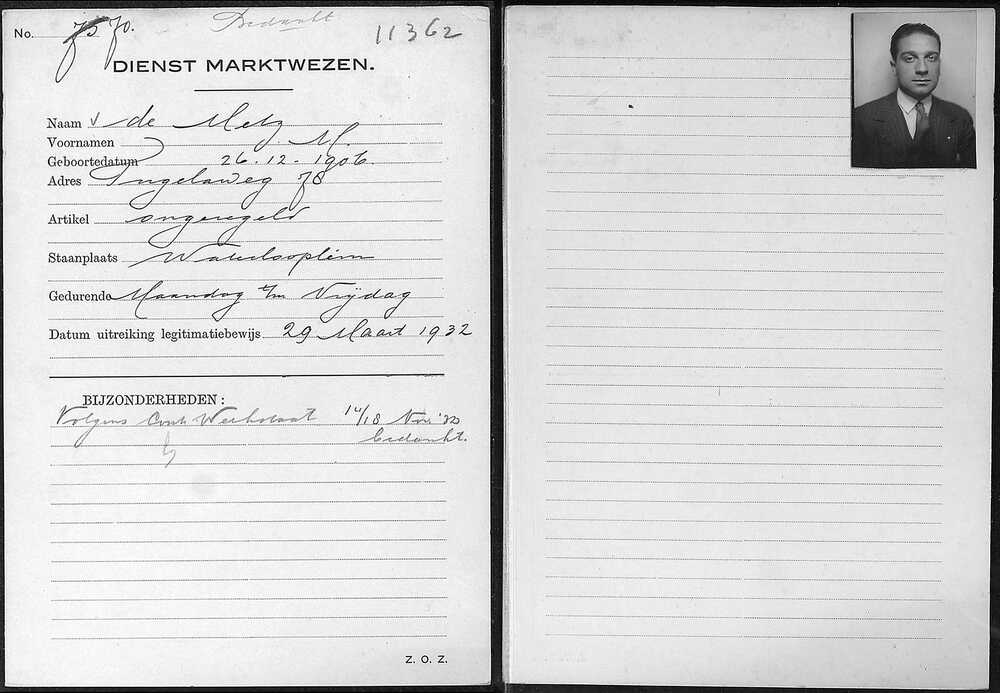 No. 70. Bedankt 11362
DIENST MARKTWEZEN.
Naam v de Metz
Voornamen M.
Geboortedatum 26.12.-1906
Adres Ingelaweg 78
Artikel ongeregeld
Staanplaats Waterlooplein
Gedurende Maandag t/m Vrijdag
Datum uitreiking legitimatiebewijs 29 Maart 1932
BIJZONDERHEDEN:
Volgens Werkstaat 14/18 Nov. '32
bedankt.
Z. O. Z.